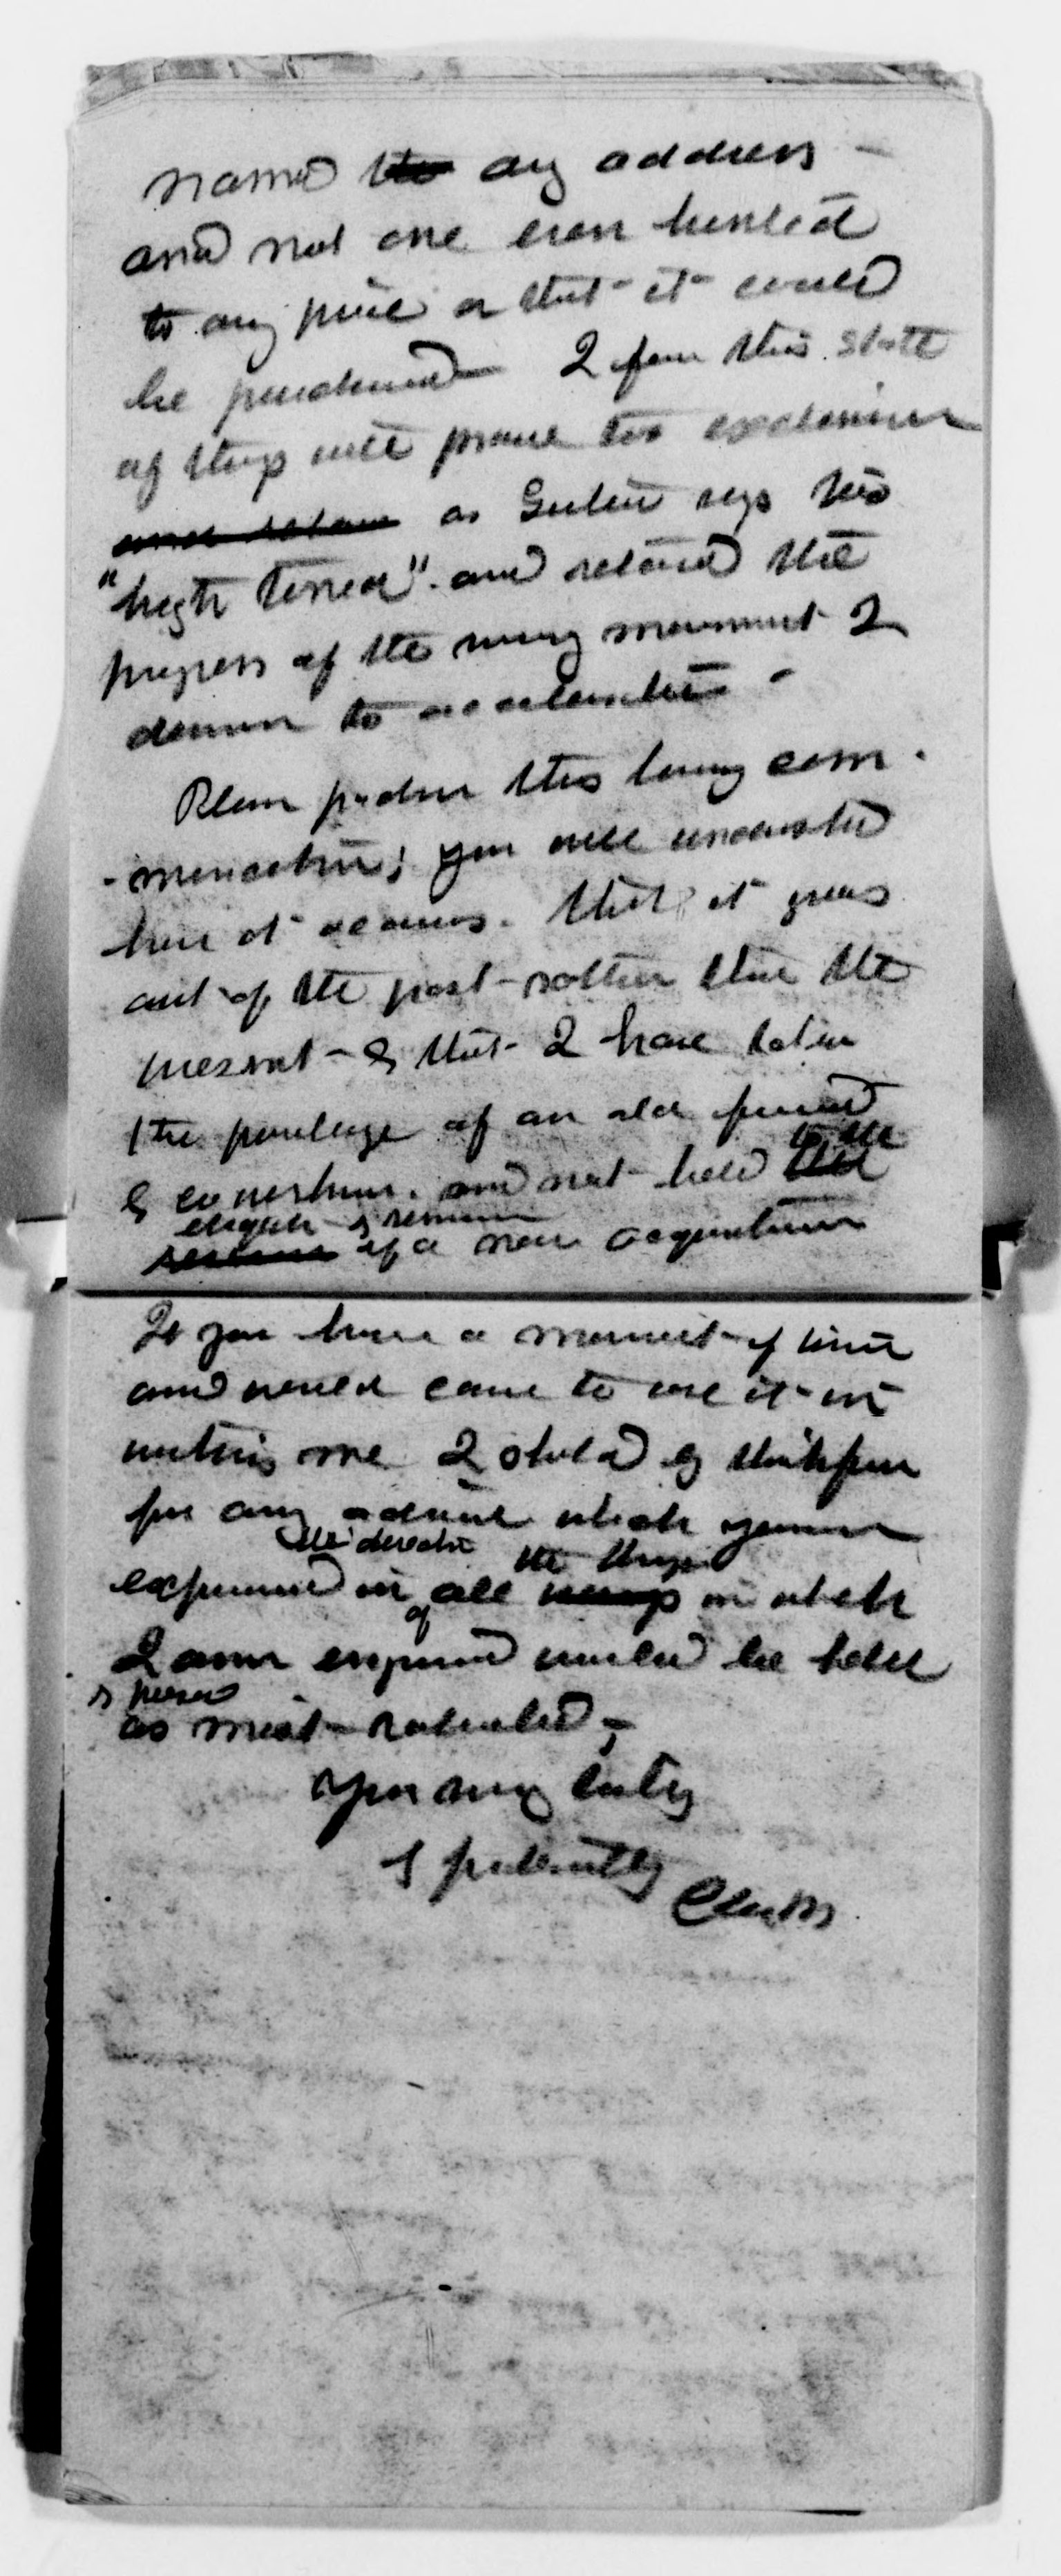 named any address -
and not one even hinted
to any price or that it could
be purchased - I fear this state
of things will prove too exclusive
as says too
"high toned" and retard the
progress of the very movement I
desire to accelerate -
Please pardon this long com-
-munication; you will understand
how it occurs. that it grows
out of the past - rather than the
present - & that I have taken
the privilege of an old friend
& and not held to the
etiquette & reserve
of a new acquaintance
If you have a moment of time
and would care to use it in
writing me I should be thankful
for any advice which your
the direction the things
experience in of all in which
I am engaged would be held
& prized
as most valuable, -
Yours very truly
&
Clara B